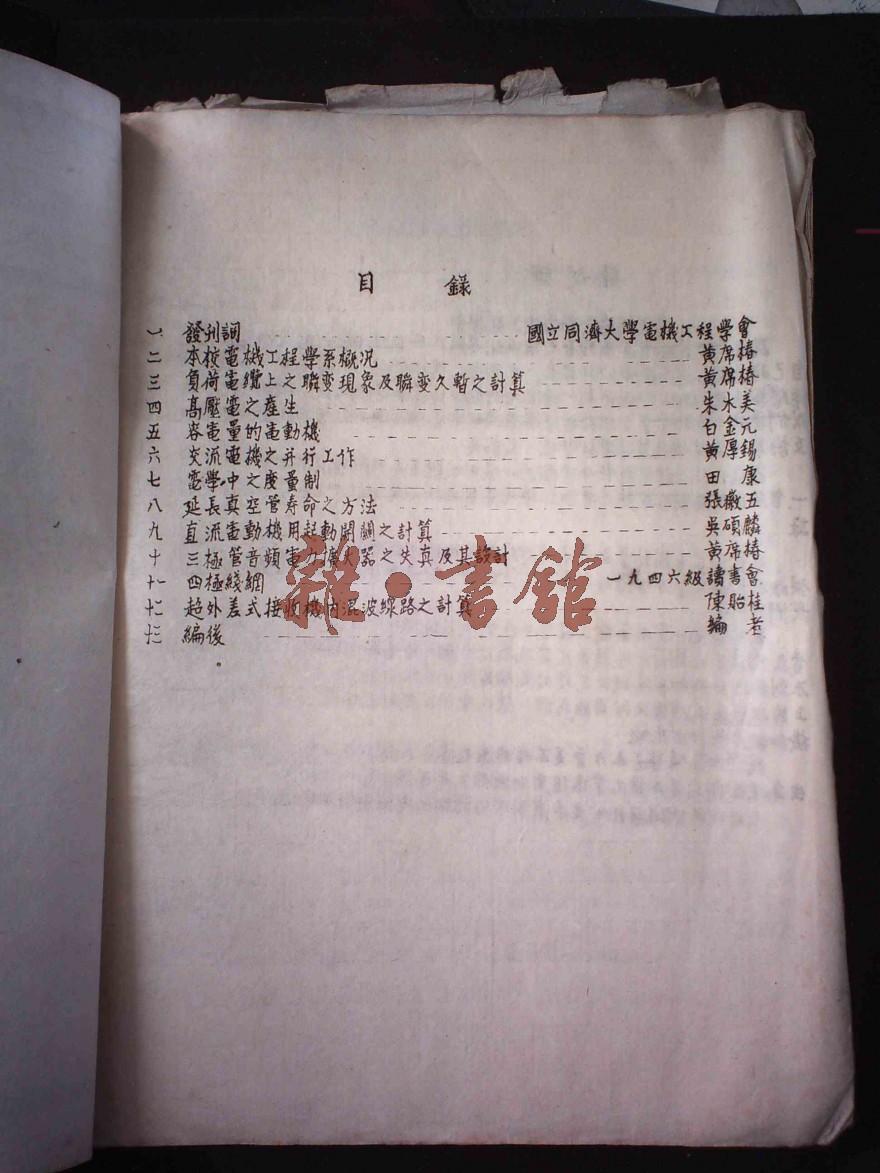 目 錄
一 發刊詞 國立同濟大學電機工程學會
二 本校電機工程學系概況 黃席椿
三 負荷電纜上之瞬变現象及瞬变久暫之計算 黃席椿
四 高壓電之產生 朱木美
五 容電量的電動機 白金元
六 交流電機之并行工作 黃厚錫
七 電學中之度量制 田康
八 延長真空管寿命之方法 張徽五
九 直流電動機用起動開關之計算 吳碩麟
十 三極管音頻電力擴大器之失真及其設計 黃席椿
十一 四極綫網 一九四六級讀書會
十二 超外差式接收機内混波線路之計算 陳貽桂
十三 編後 編者
雜·書館